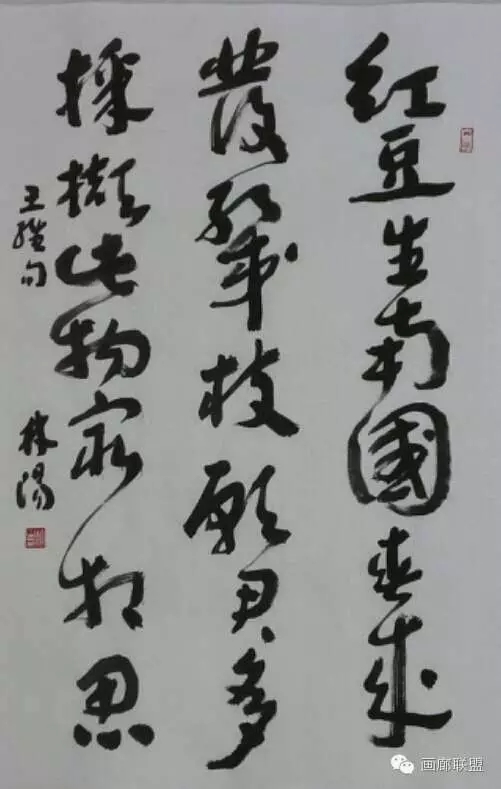 紅豆生南國春來
發幾枝願君多
採擷此物最相思
王維句
林陽
画廊联盟